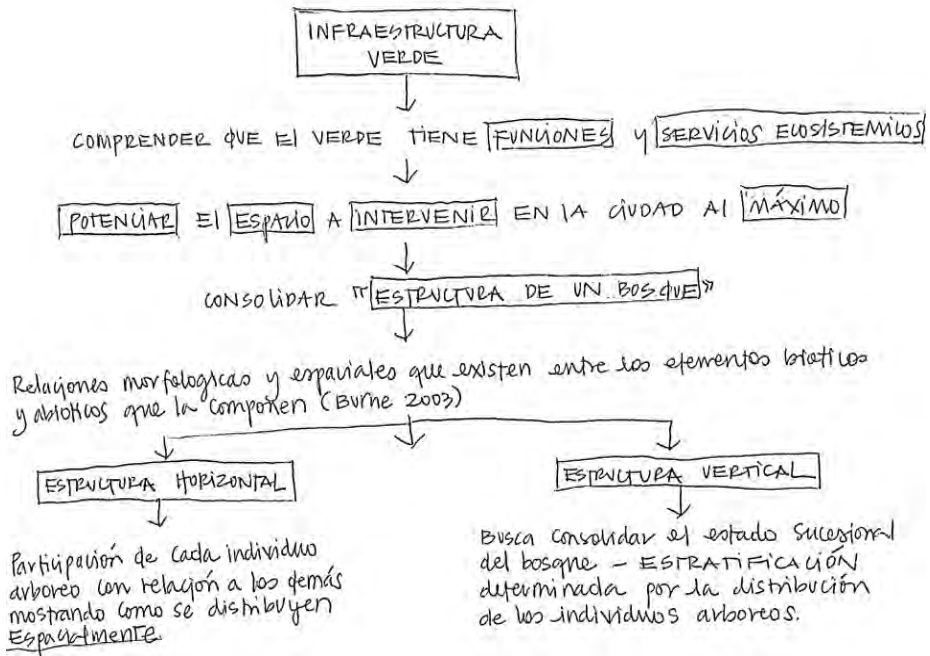 INFRAESTRUCTURA
VERDE
COMPRENDER QUE El VERDE TIENE FUNCIONES y SERVICIOS ECOSISTEMICOS
POTENCIAR El ESPACIO A INTERVENIR EN lA CIUDAD Al MÁXIMO
CONSOLIDAR "ESTRUCTURA DE UN BOSQUE"
Relaciones morfologicas y espaciales que existen entre los elementos bioticos
y abioticos que la componen (Burne 2003)
ESTRUCTURA HORIZONTAL
ESTRUCTURA VERTICAL
Participación de cada individuo
arboreo con relación a los demás
mostrando como se distribuyen
Espacialmente.
Busca consolidar el estado sucesional
del bosque – ESTRATIFICACIÓN
determinada por la distribución
de los individuos arboreos.